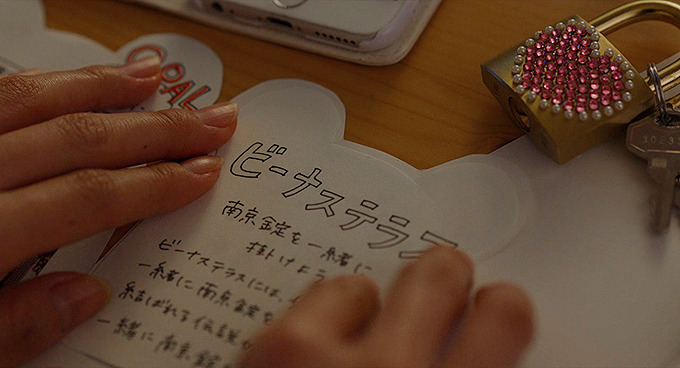 GOAL
ビーナステラス
南京錠を一緒に
掛けよう
ビーナステラスには、
一緒に南京錠を
結ばれる伝説が
一緒に南京錠